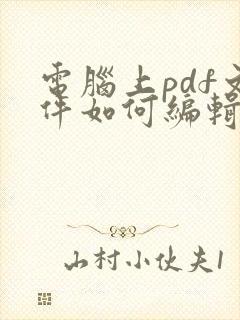 電腦上pdf文
件如何編輯
山村小伙夫1